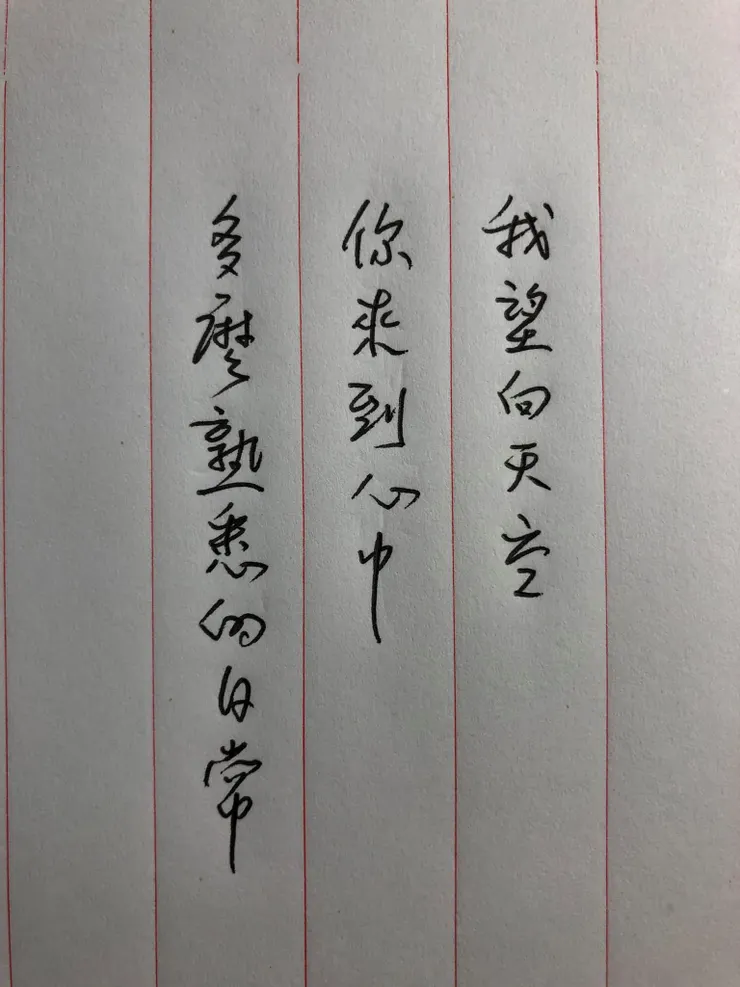 我望向天空
你来到心中
多麽熟悉的日常